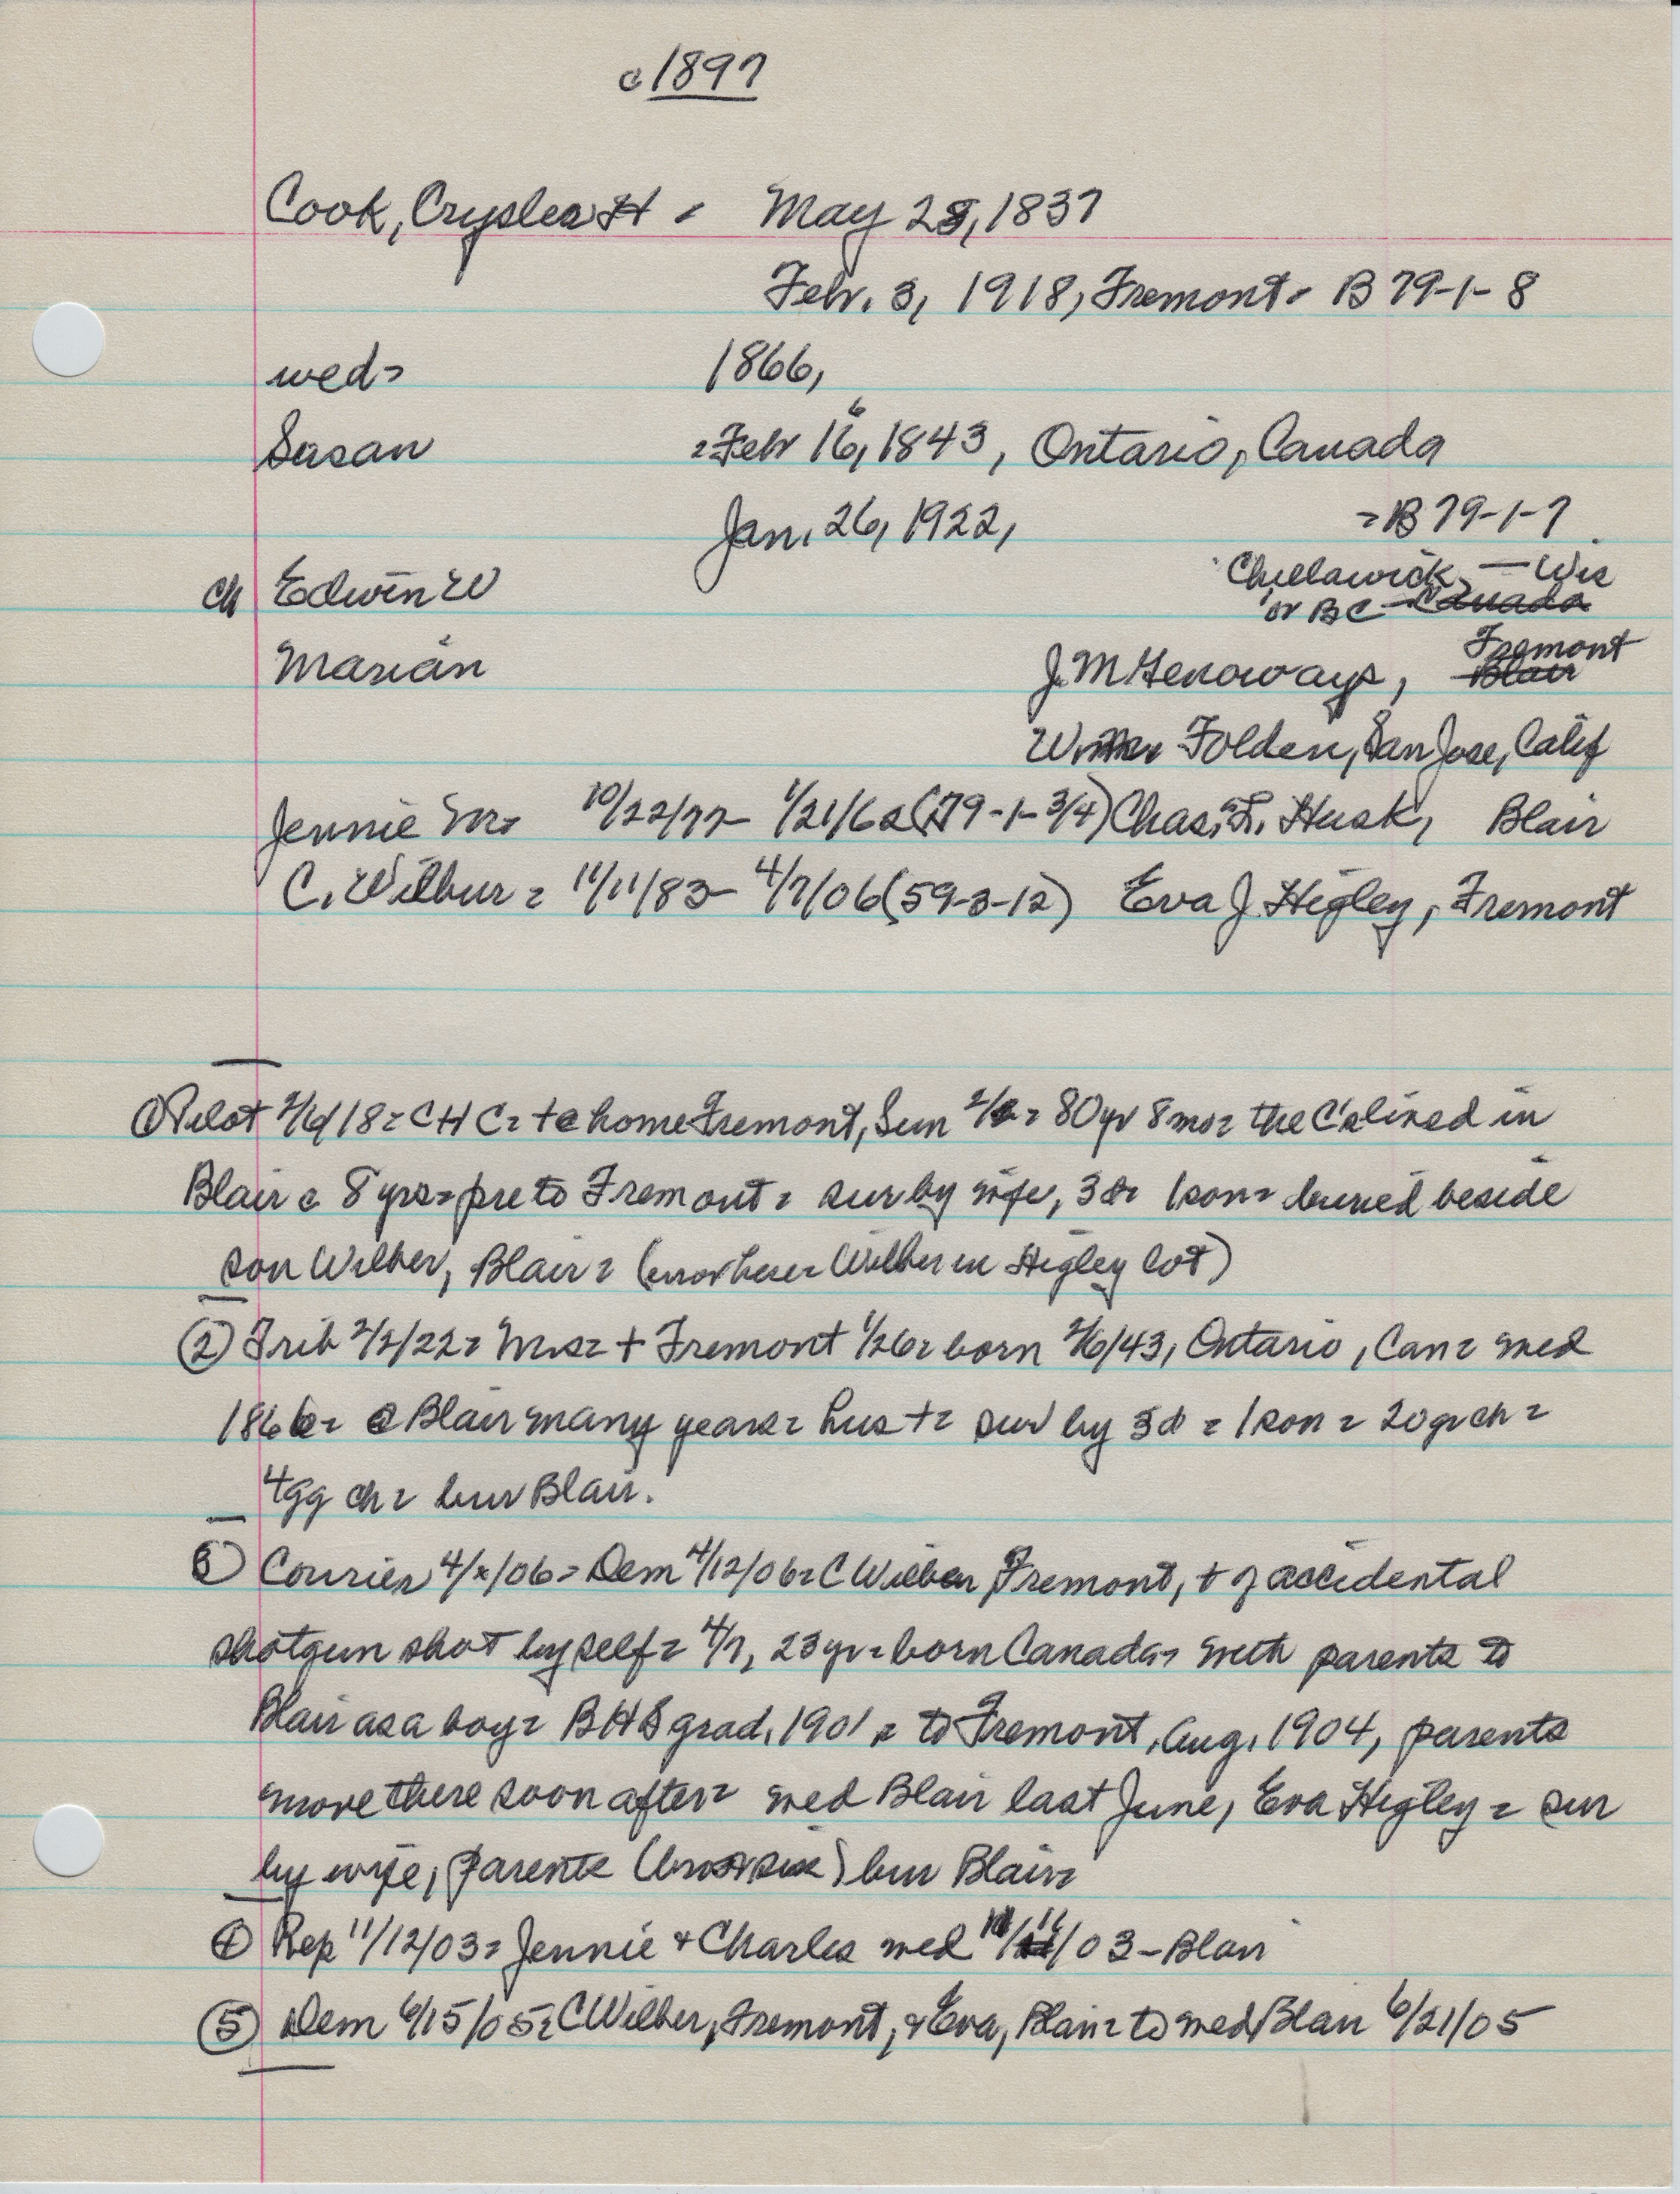 c 1897
Cook, Crysler H = May 28, 1837
Feb. 3, 1918, Fremont = B 79-1-8
wed = 1866,
Susan = Feb 16, 1843, Ontario, Canada
6
Jan. 26, 1922, = B 79-1-7
ch Edwin W Chillawick, — Wis
or BC - Canada
Marian J. M Genoways, Fremont
Blair
Wm Folden, San Jose, Calif
Jennie M = 10/22/77 - 1/21/62 (79-1-3/4) Chas. L. Husk, Blair
C. Wilbur = 11/11/83 - 4/7/06 (59-3-12) Eva J. Higley, Fremont
① Pilot 2/6/18 = CHC = + @ home Fremont, Sun 2/3 = 80 yr 8 mo = the C's lived in
Blair c 8 yrs = pre to Fremont = sur by wife, 3 d = 1 son = buried beside
son Wilber, Blair = (error here = Wilber in Higley lot)
② Trib 2/2/22 = Mrs = + Fremont 1/26 = born 2/6/43, Ontario, Can = wed
1866 = @ Blair many years = hus + = sur by 3 d = 1 son = 20 gr ch =
4 gg ch = bur Blair.
③ Courier 4/x/06 = Dem 4/12/06 = C Wilber, Fremont, + of accidental
shotgun shot by self = 4/7, 23 yr = born Canada = with parents to
Blair as a boy = BHS grad. 1901 = to Fremont, Aug. 1904, parents
move there soon after = wed Blair last June, Eva Higley = sur
by wife, parents (bro + sis) bur Blair =
④ Rep 11/12/03 = Jennie + Charles wed 11/11/03 - Blair
⑤ Dem 6/15/05 = C Wilber, Fremont, + Eva, Blair = to wed Blair 6/21/05